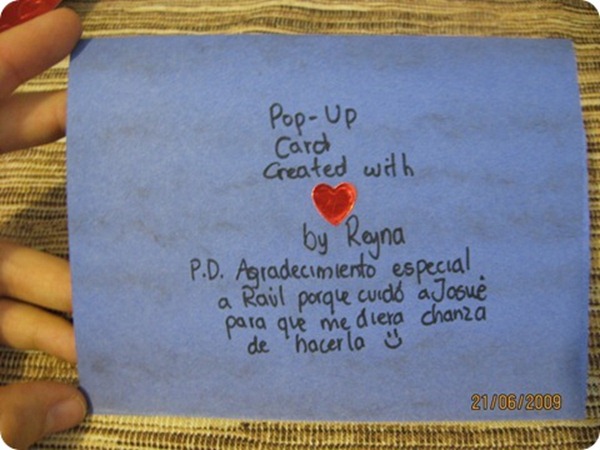 Pop-Up
Card
Created with
by Reyna
P.D. Agradecimiento especial
a Raúl porque cuidó a Josué
para que me diera chanza
de hacerla
21/06/2009